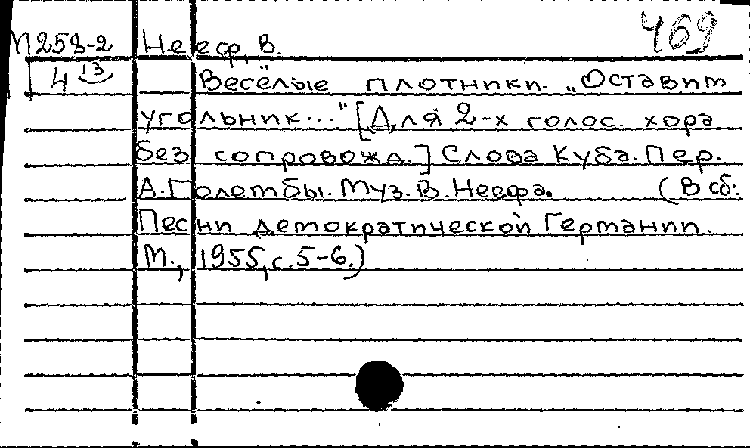 469
М258-2 Нееф, В.
4 13 Весёлые плотники. „Оставит
угольник..." [Для 2-х голос. хора
без сопровожд.] Слова Куба. Пер.
А. Голембы. Муз. В. Неефа. (В сб:
Песни демократической Германии.
М., 1955, с. 5-6.)